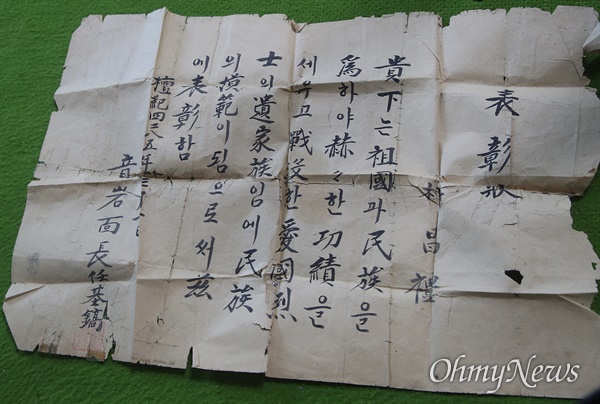 表彰狀
昌禮
貴下는 祖國과 民族을
爲하야 赫々한 功績을
세우고 戰歿한 愛國烈
士의 遺家族임에 民族
의 模範이 됨으로써 玆
에 表彰함
檀紀四二八五年
音岩面長 任基鎬
OhmyNews